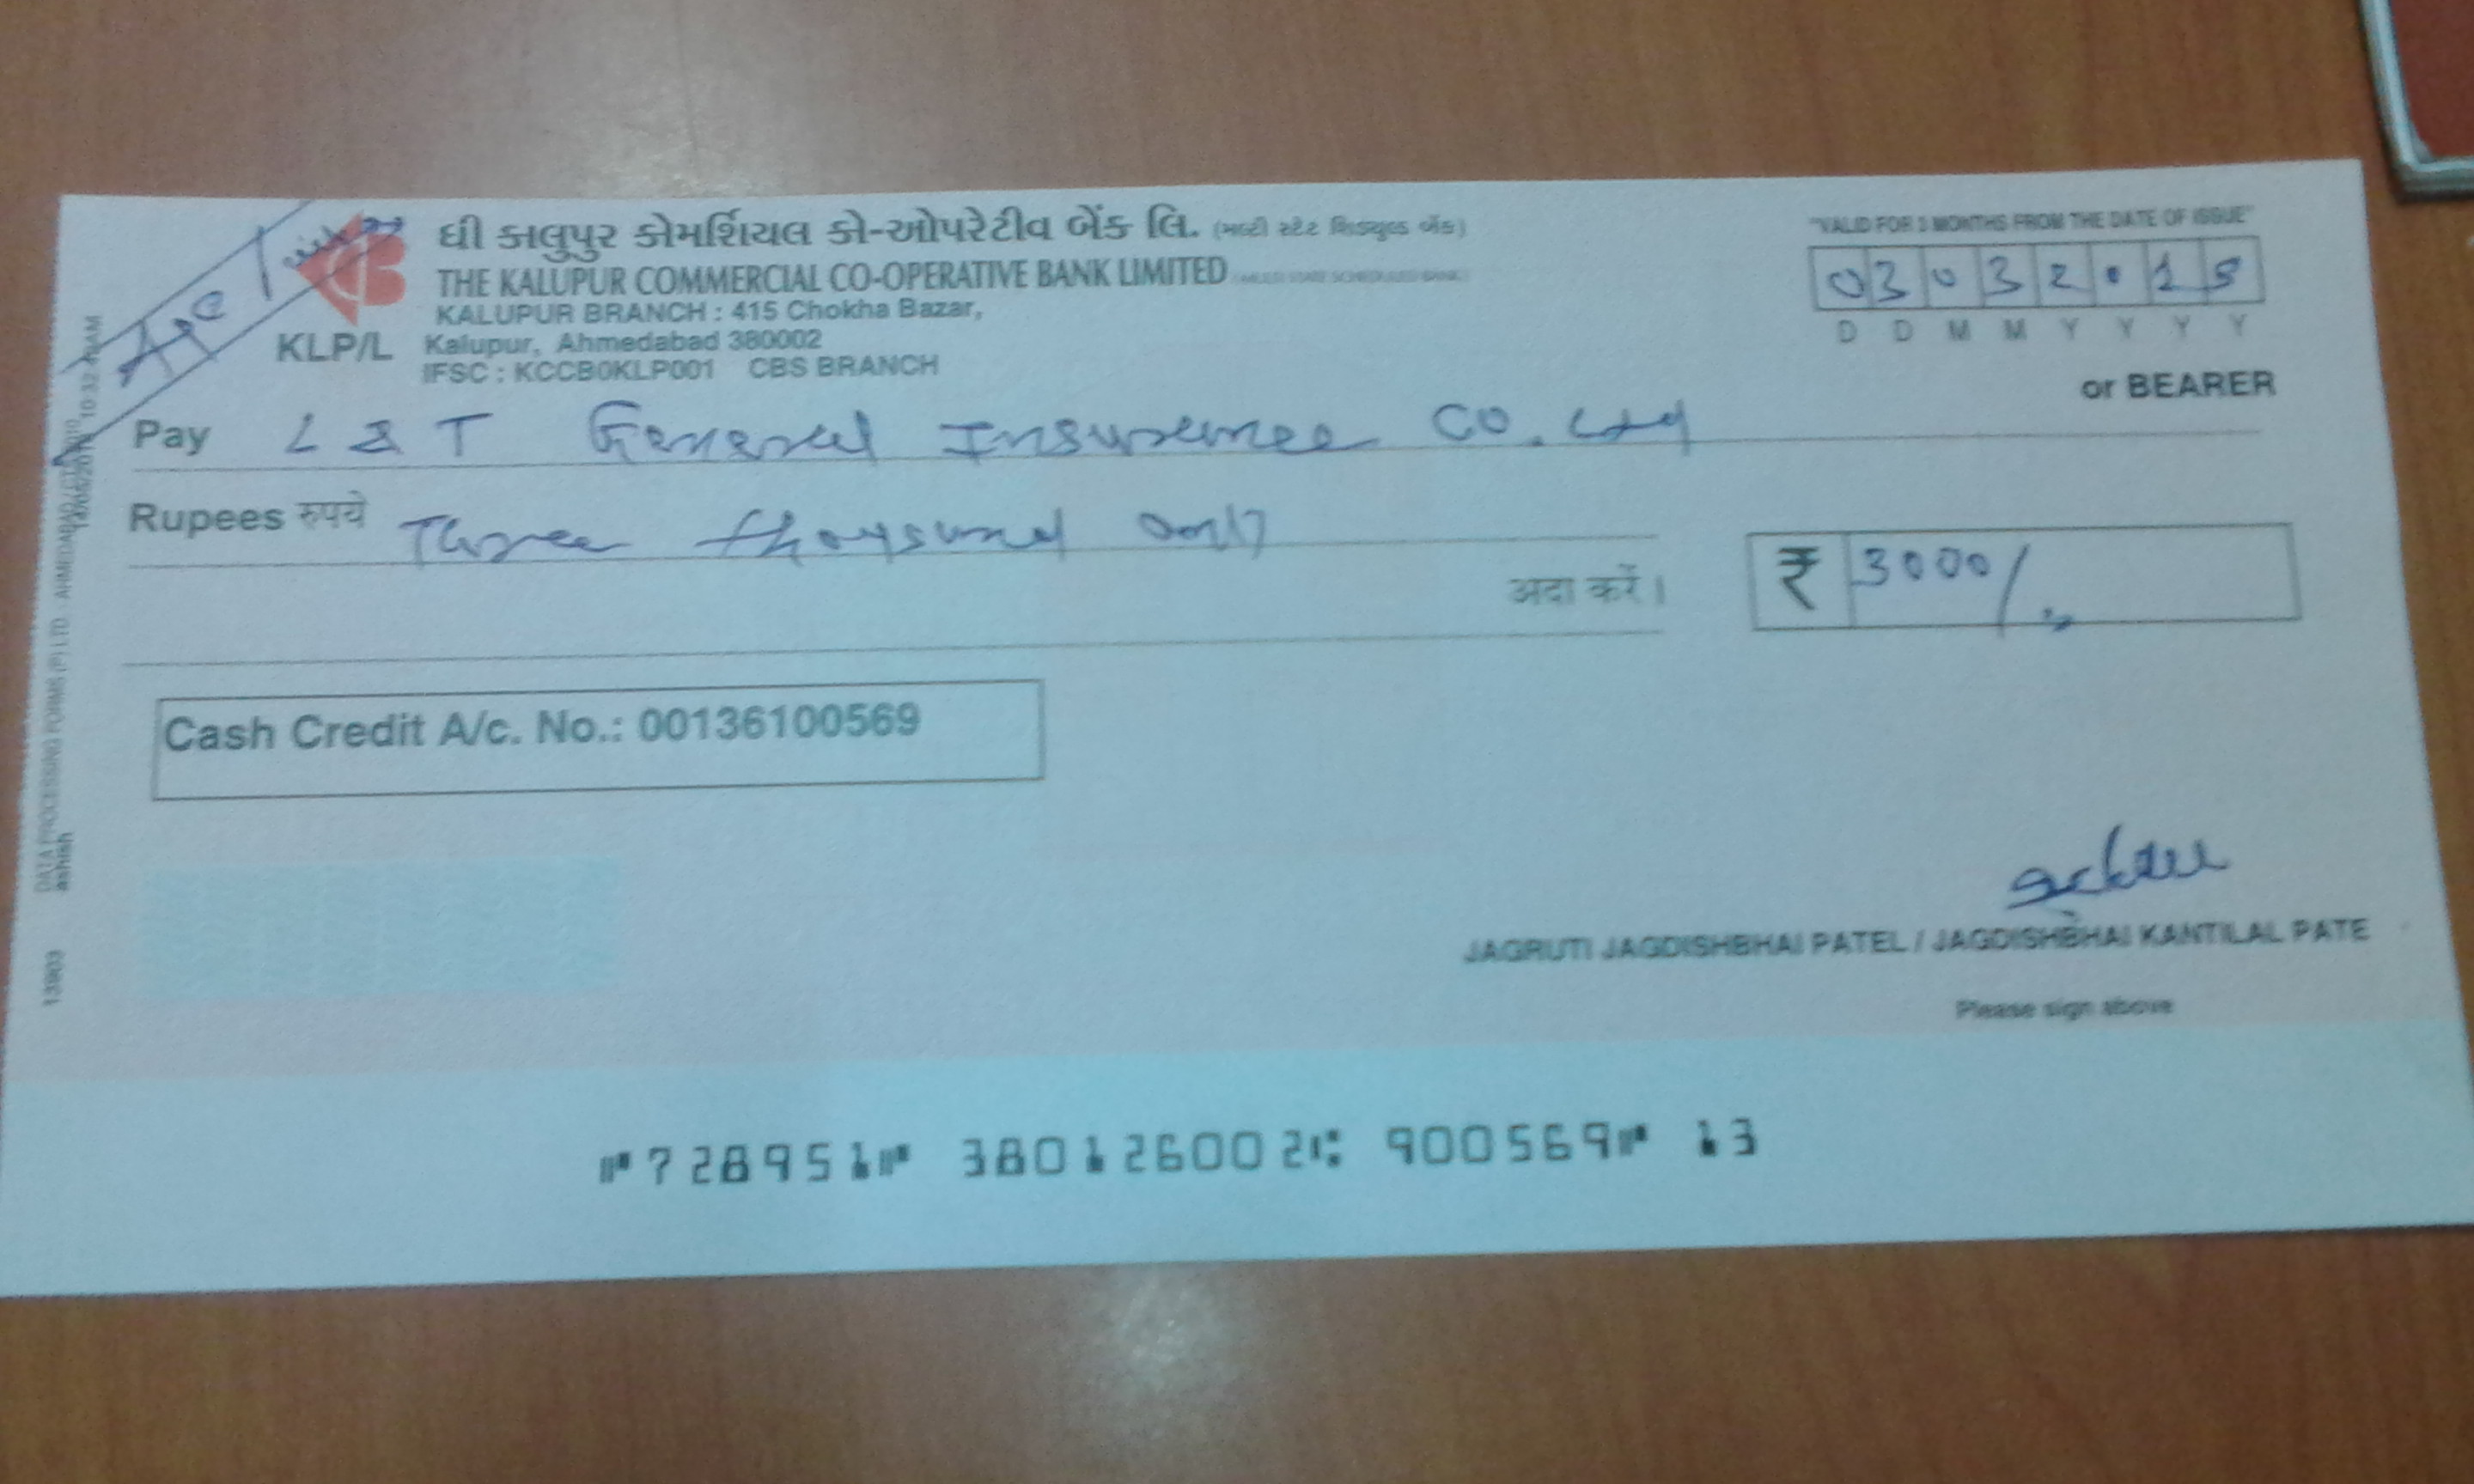 ધી કાલુપુર કોમર્શિયલ કો-ઓપરેટીવ બેંક લિ. (મલ્ટી સ્ટેટ શિડયુલ્ડ બેંક)
THE KALUPUR COMMERCIAL CO-OPERATIVE BANK LIMITED (MULTI STATE SCHEDULED BANK)
KALUPUR BRANCH : 415 Chokha Bazar,
KLP/L Kalupur, Ahmedabad 380002
IFSC : KCCB0KLP001 CBS BRANCH
"VALID FOR 3 MONTHS FROM THE DATE OF ISSUE"
03032015
D D M M Y Y Y Y
or BEARER
A/c
Pay L & T General Insurance CO. Ltd
Rupees रुपये Three thousand only
अदा करें।
₹ 3000/
Cash Credit A/c. No.: 00136100569
JAGRUTI JAGDISHBHAI PATEL / JAGDISHBHAI KANTILAL PATE
Please sign above
⑈728951⑈ 380126002⑆ 900569⑈ 13
DATA PROCESSING FORMS (P) LTD. AHMEDABAD
10:32
ashish
13903